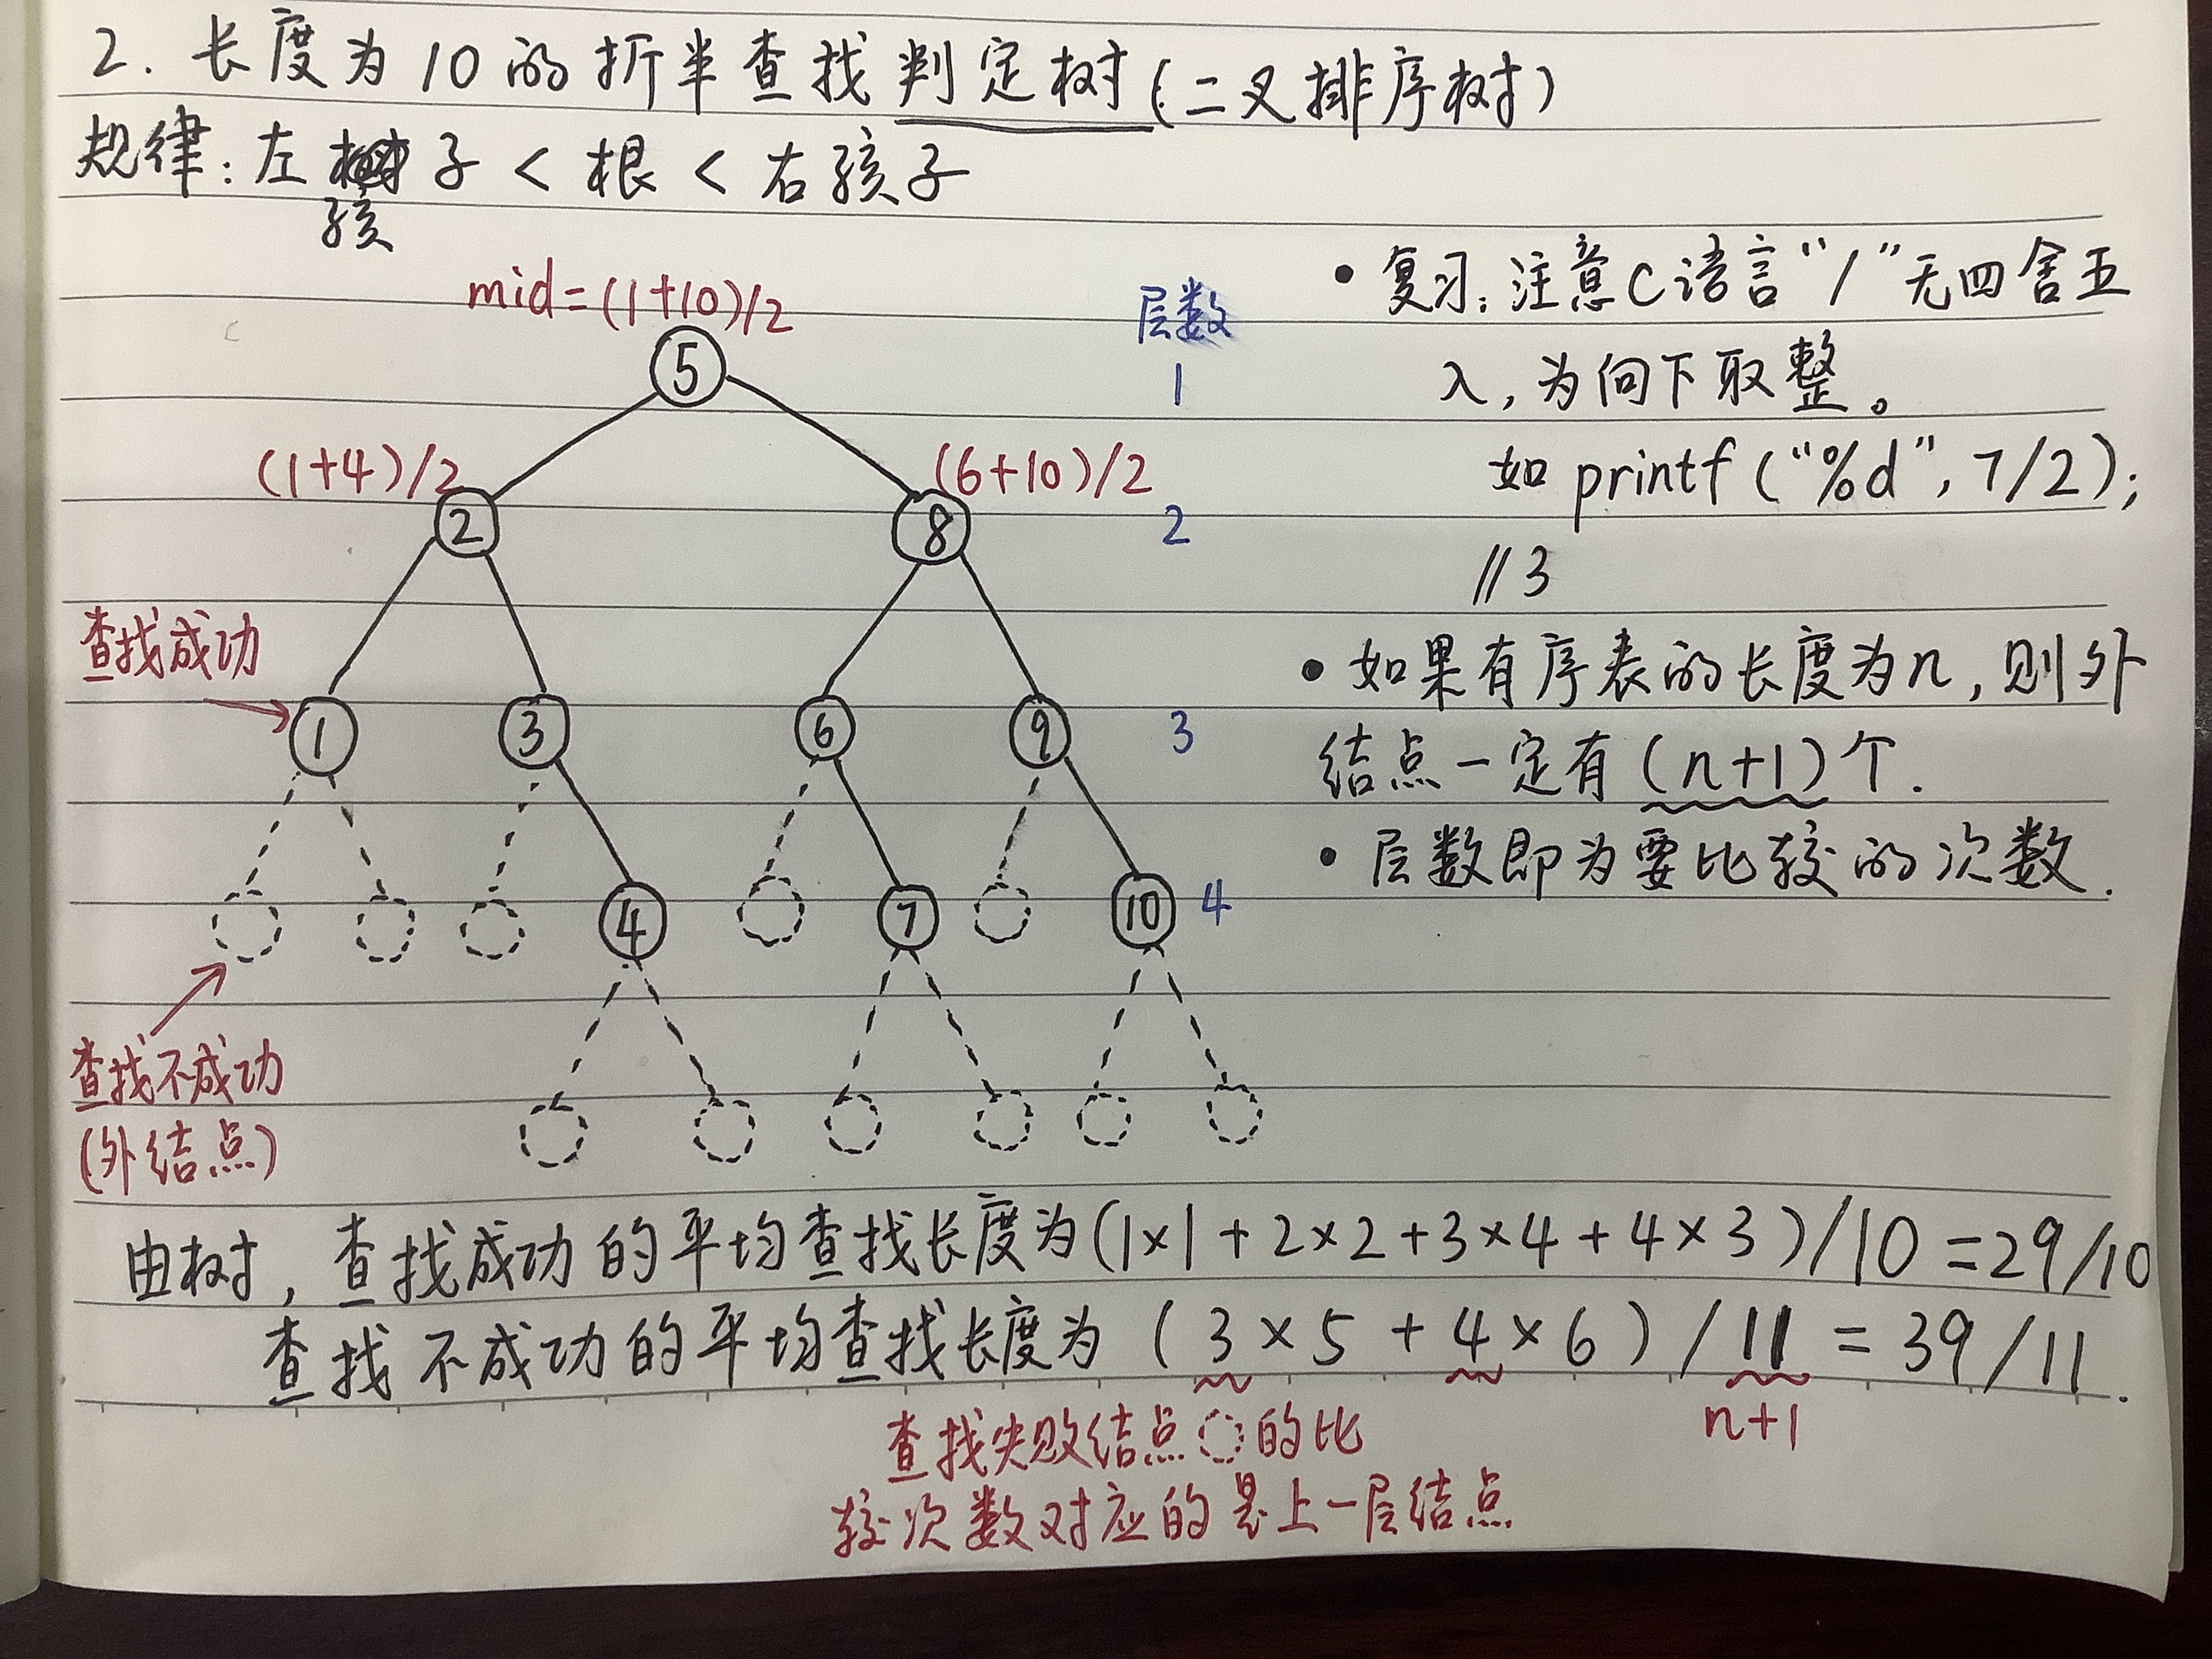 2. 长度为10的折半查找判定树(二叉排序树)
规律:左孩子 < 根 < 右孩子
mid=(1+10)/2
层数
5
1
(1+4)/2
(6+10)/2
2
8
2
查找成功
1
3
6
9
3
4
7
10
4
查找不成功
(外结点)
• 复习:注意C语言“/”无四舍五
入,为向下取整。
如 printf("%d", 7/2);
//3
• 如果有序表的长度为n,则外
结点一定有(n+1)个.
• 层数即为要比较的次数.
由树,查找成功的平均查找长度为(1×1+2×2+3×4+4×3)/10=29/10
查找不成功的平均查找长度为(3×5+4×6)/11=39/11.
n+1
查找失败结点 的比
较次数对应的是上一层结点